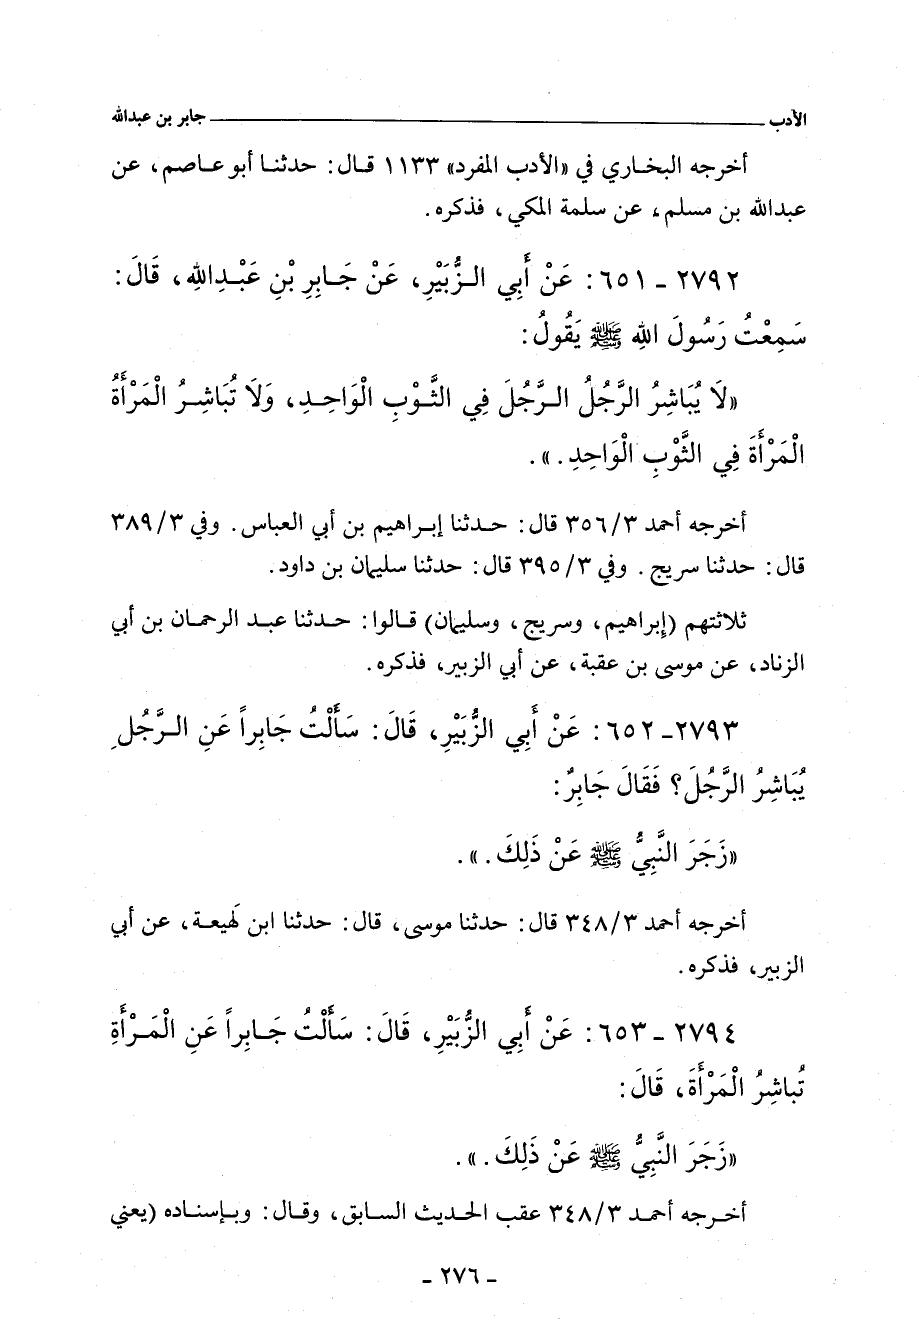 الأدب ــــــــــــــــــــ جابر بن عبدالله
أخرجه البخاري في «الأدب المفرد» ١١٣٣ قال: حدثنا أبو عاصم، عن
عبدالله بن مسلم، عن سلمة المكي، فذكره.
٢٧٩٢ - ٦٥١: عَنْ أَبِي الزُّبَيْرِ، عَنْ جَابِرِ بْنِ عَبْدِاللهِ، قَالَ:
سَمِعْتُ رَسُولَ اللهِ ﷺ يَقُولُ:
«لَا يُبَاشِرُ الرَّجُلُ الرَّجُلَ فِي الثَّوْبِ الْوَاحِدِ، وَلَا تُبَاشِرُ الْمَرْأَةُ
الْمَرْأَةَ فِي الثَّوْبِ الْوَاحِدِ.».
أخرجه أحمد ٣٥٦/٣ قال: حدثنا إبراهيم بن أبي العباس. وفي ٣٨٩/٣
قال: حدثنا سريج. وفي ٣٩٥/٣ قال: حدثنا سليمان بن داود.
ثلاثتهم (إبراهيم، وسريج، وسليمان) قالوا: حدثنا عبد الرحمان بن أبي
الزناد، عن موسى بن عقبة، عن أبي الزبير، فذكره.
٢٧٩٣- ٦٥٢: عَنْ أَبِي الزُّبَيْرِ، قَالَ: سَأَلْتُ جَابِراً عَنِ الرَّجُلِ
يُبَاشِرُ الرَّجُلَ؟ فَقَالَ جَابِرٌ:
«زَجَرَ النَّبِيُّ ﷺ عَنْ ذَلِكَ.».
أخرجه أحمد ٣٤٨/٣ قال: حدثنا موسى، قال: حدثنا ابن لهَيعة، عن أبي
الزبير، فذكره.
٢٧٩٤ - ٦٥٣: عَنْ أَبِي الزُّبَيْرِ، قَالَ: سَأَلْتُ جَابِراً عَنِ الْمَرْأَةِ
تُباشِرُ الْمَرْأَةَ، قَالَ:
«زَجَرَ النَّبِيُّ ﷺ عَنْ ذَلِكَ.».
أخرجه أحمد ٣٤٨/٣ عقب الحديث السابق، وقال: وبإسناده (يعني
- ٢٧٦ -